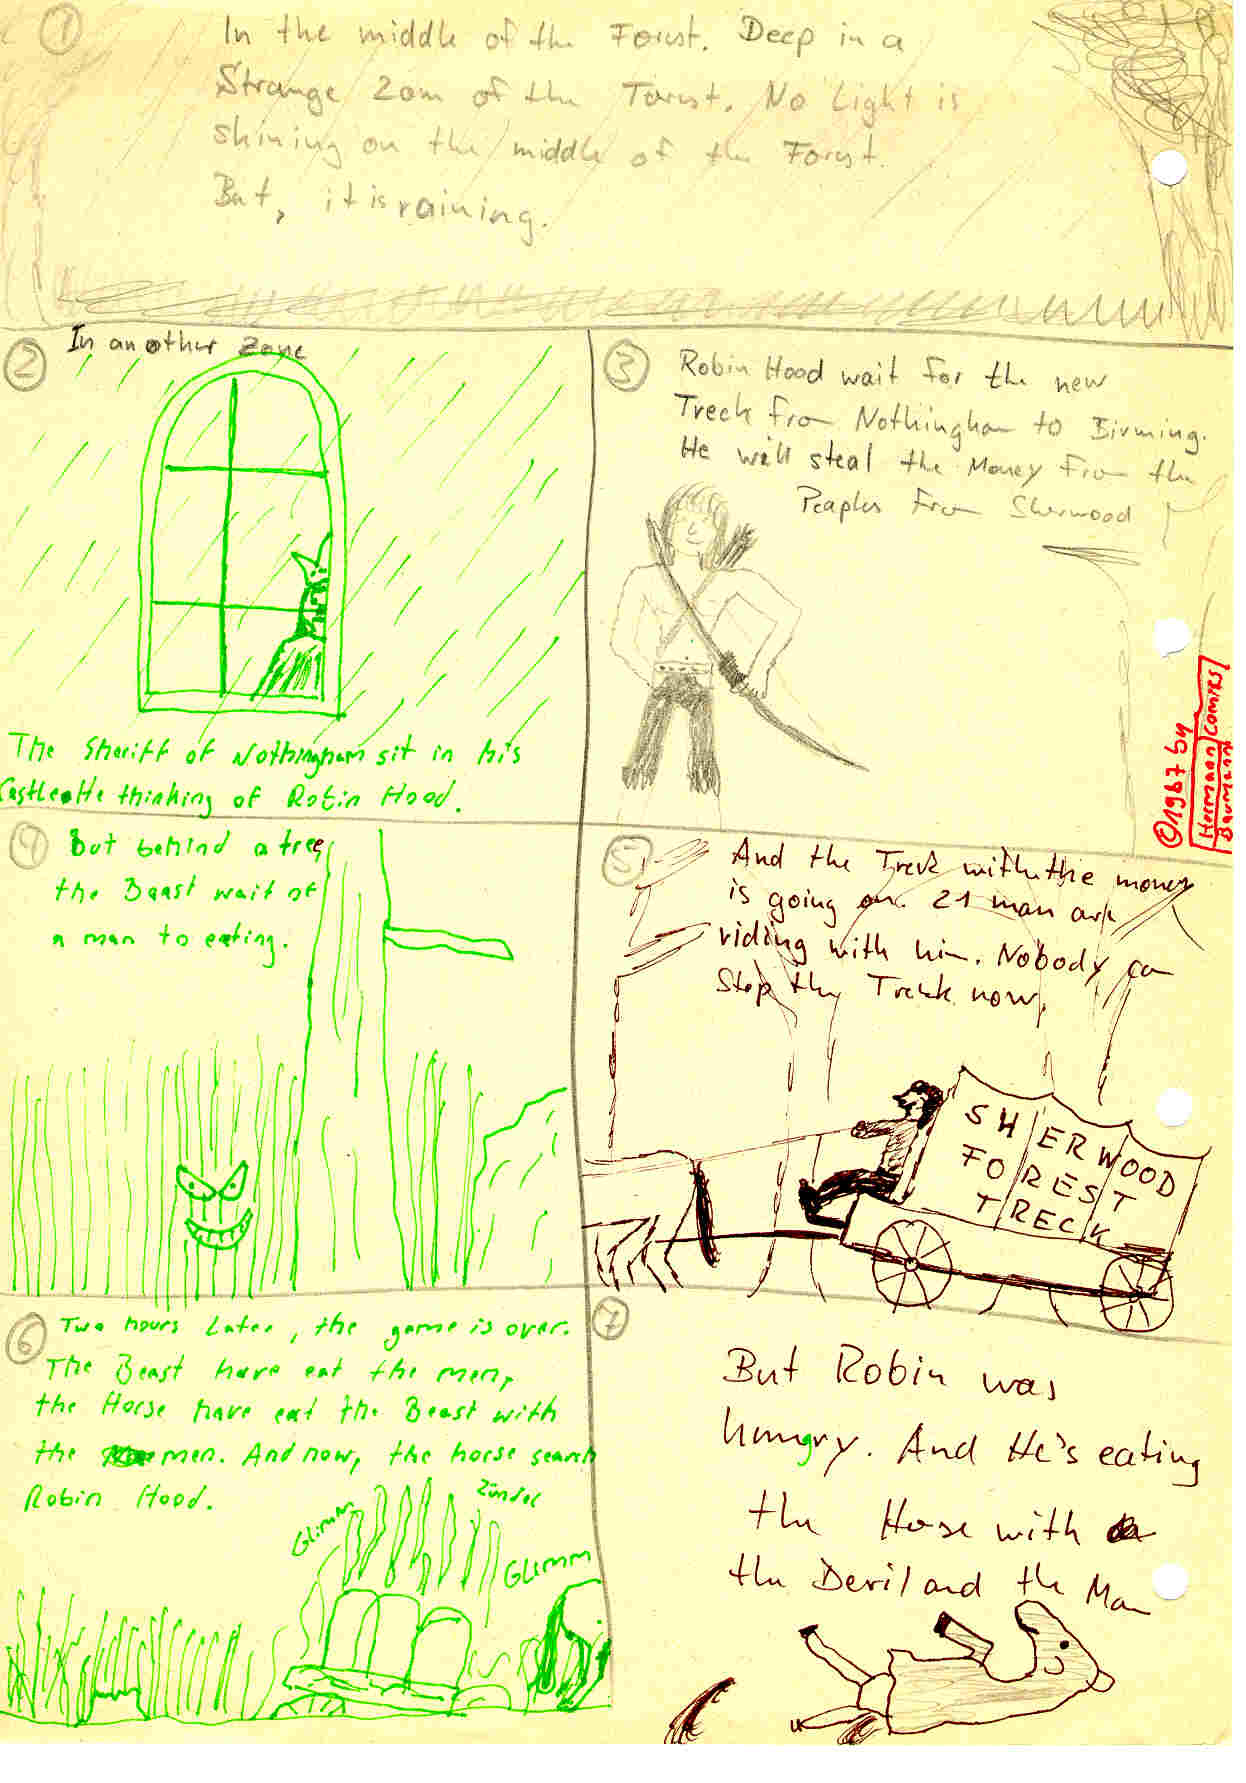 1
In the middle of the Forest. Deep in a
Strange Zone of the Forest. No Light is
shining on the middle of the Forest.
But, it is raining.
2
In another Zone
The Sheriff of Nothingham sit in his
Castle. He thinking of Robin Hood.
3
Robin Hood wait for the new
Treck from Nothingham to Birming.
He will steal the Money from the
Peaples from Sherwood
©1987 by
Hermann Comixs
Baumann
4
But behind a tree,
the Beast wait of
a man to eating.
5
And the Treck with the money
is going on. 21 man are
riding with him. Nobody can
Stop the Treck now.
SHERWOOD
FOREST
TRECK
6
Two hours Later, the game is over.
The Beast have eat the men,
the Horse have eat the Beast with
the men. And now, the horse search
Robin Hood.
Glimm
Zündel
GLIMM
7
But Robin was
hungry. And He's eating
the Horse with
the Devil and the Man